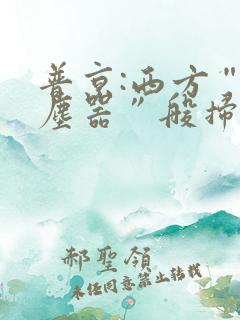 普京:西方"
塵器"般掃
郝聖領
未经同意禁止转载